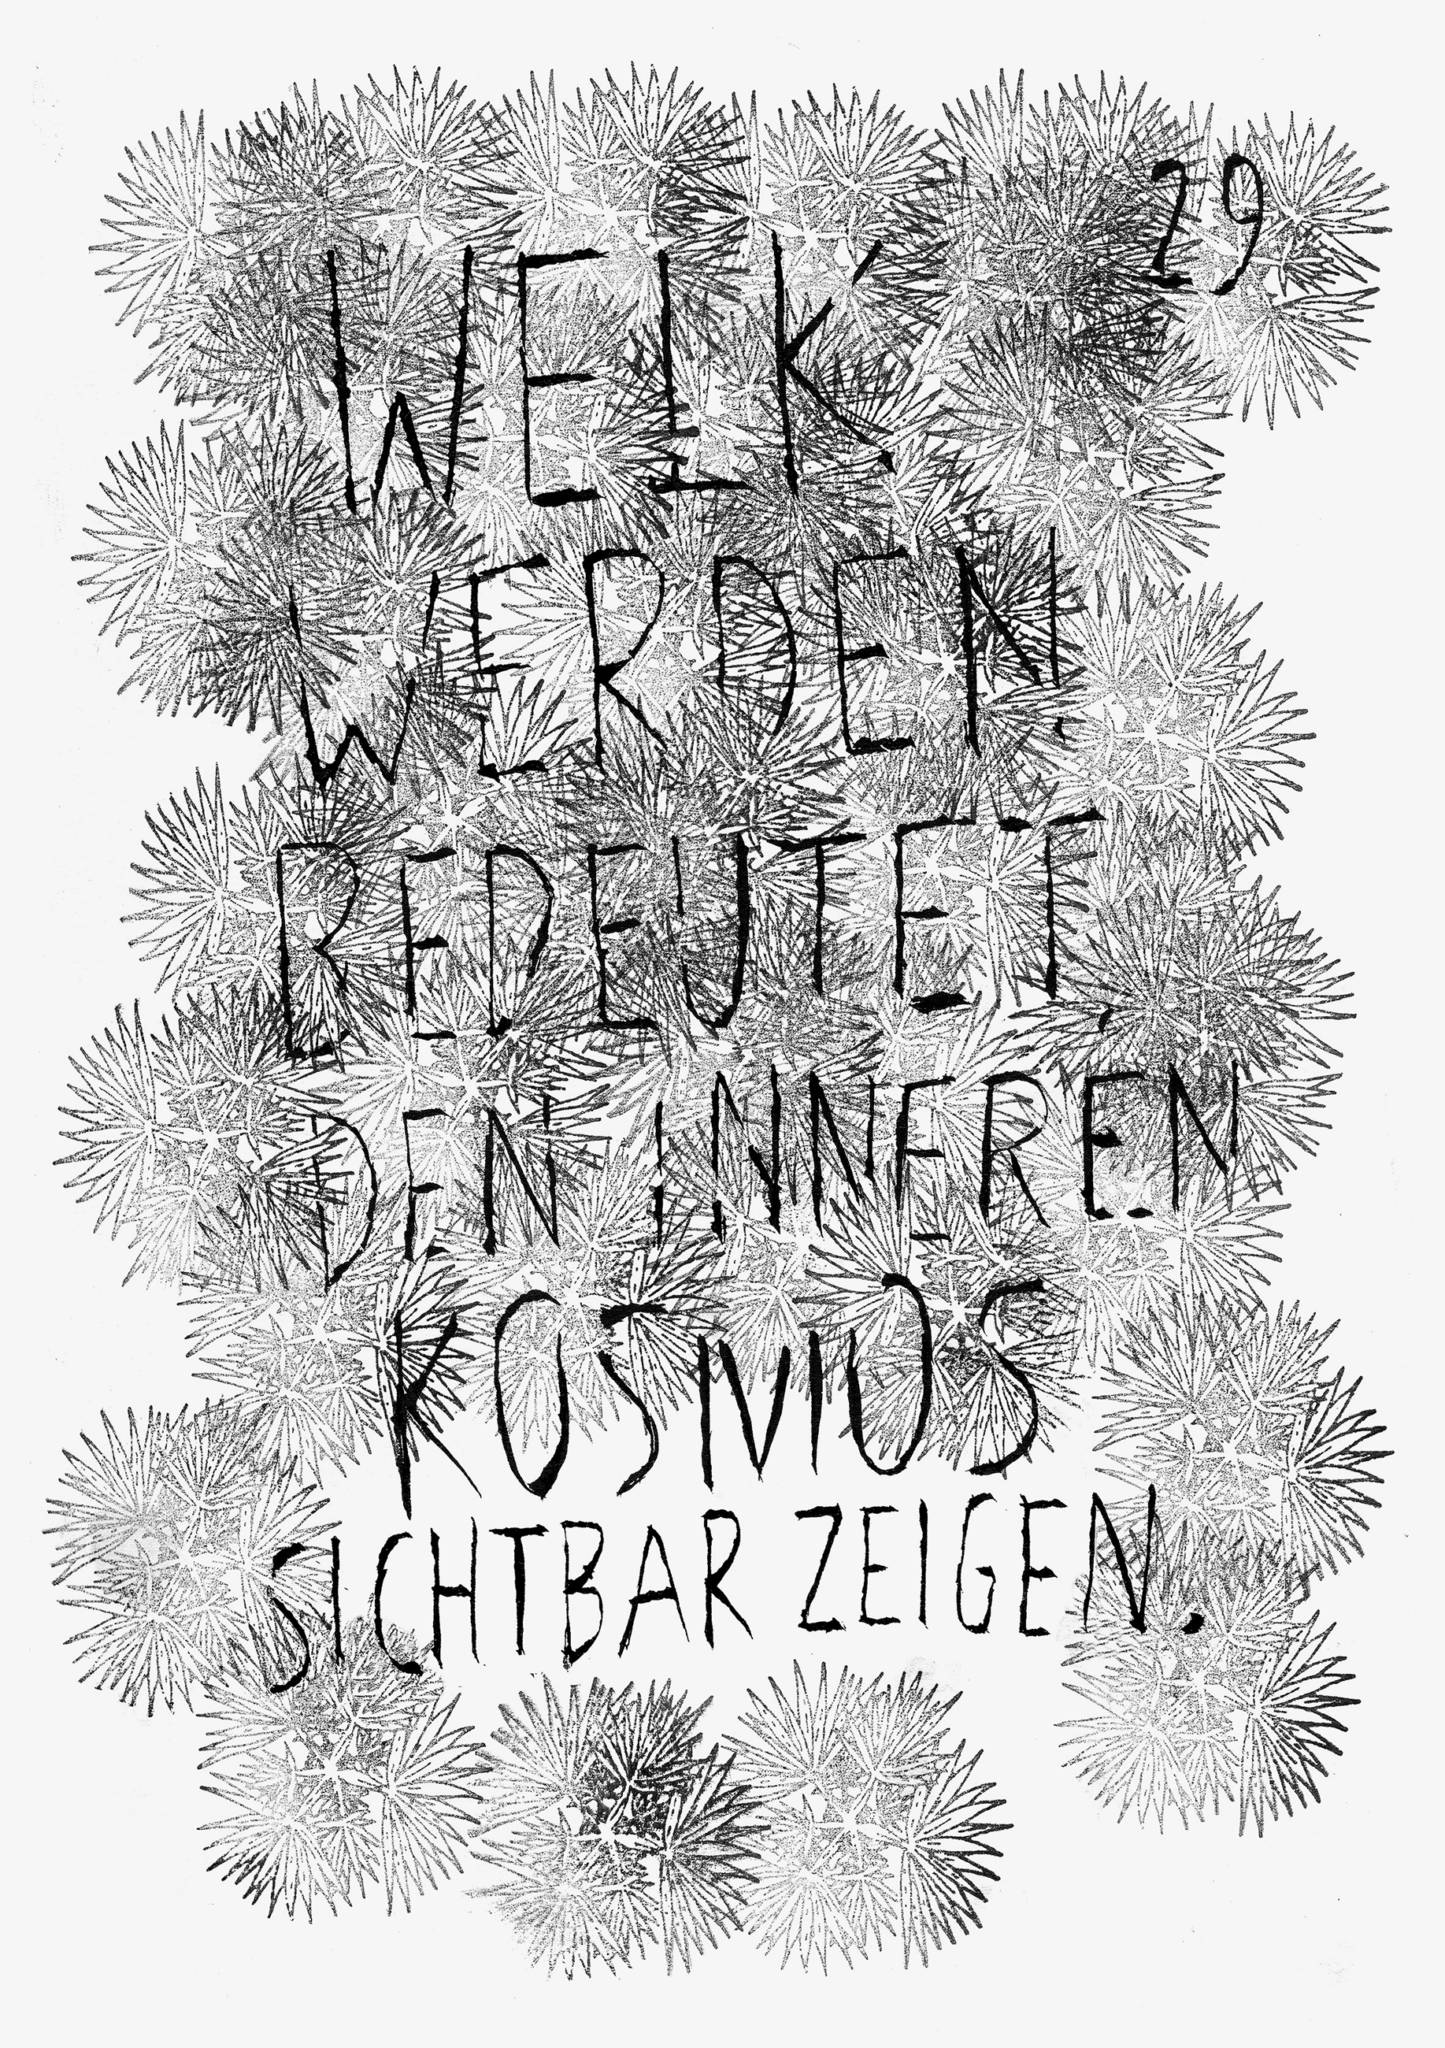 29
WELK
WERDEN
BEDEUTET,
DEN INNEREN
KOSMOS
SICHTBAR ZEIGEN.